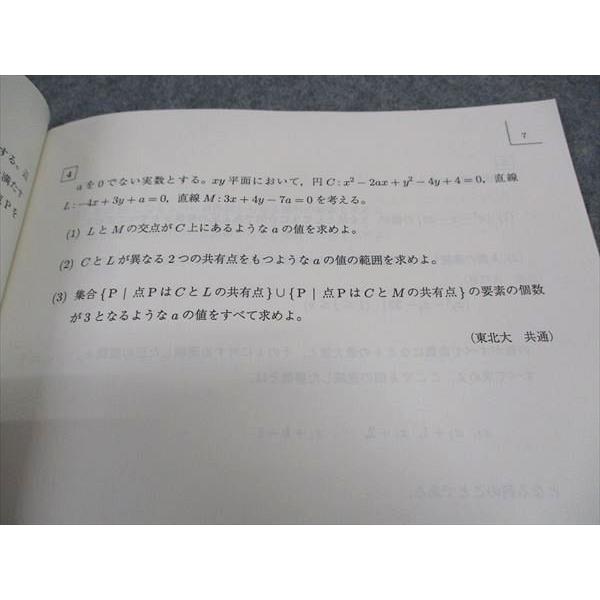 7
4
aを0でない実数とする。xy平面において，円C:x²−2ax+y²−4y+4=0，直線
L:−4x+3y+a=0，直線M:3x+4y−7a=0を考える。
(1) LとMの交点がC上にあるようなaの値を求めよ。
(2) CとLが異なる2つの共有点をもつようなaの値の範囲を求めよ。
(3) 集合{P | 点PはCとLの共有点}∪{P | 点PはCとMの共有点}の要素の個数
が3となるようなaの値をすべて求めよ。
(東北大　共通)
する。
満たす
Pを